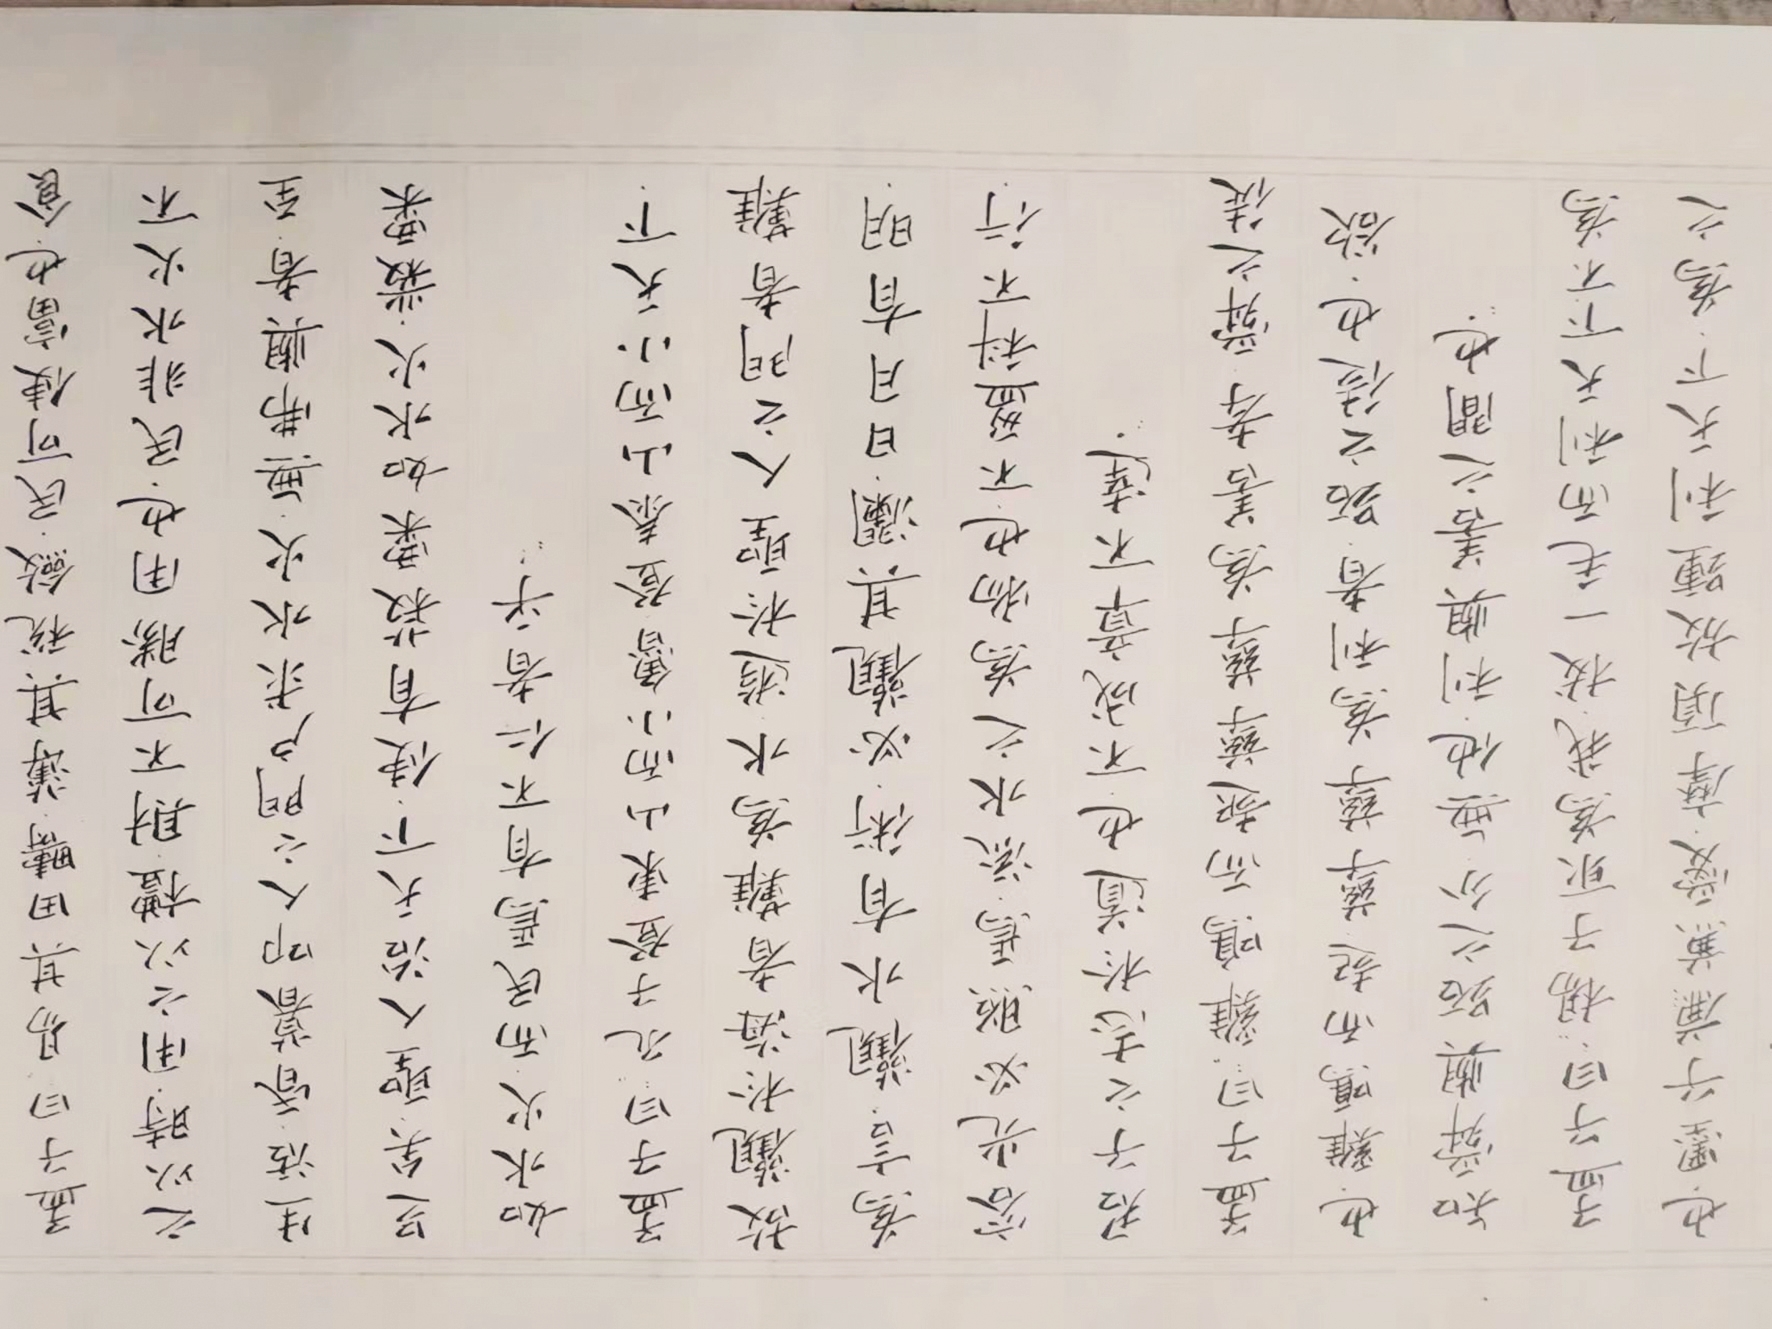 孟子曰易其田疇薄其税斂民可使富也食
之以時用之以禮財不可勝用也民非水火不
生活昏暮叩人之門戶求水火無弗與者至
足矣聖人治天下使有菽粟如水火菽粟
如水火而民焉有不仁者乎
孟子曰孔子登東山而小魯登泰山而小天下
故觀於海者難為水遊於聖人之門者難
為言觀水有術必觀其瀾日月有明
容光必照焉流水之為物也不盈科不行
君子之志於道也不成章不達
孟子曰雞鳴而起孳孳為善者舜之徒
也雞鳴而起孳孳為利者跖之徒也欲
知舜與跖之分無他利與善之間也
孟子曰楊子取為我拔一毛而利天下不為
也墨子兼愛摩頂放踵利天下為之